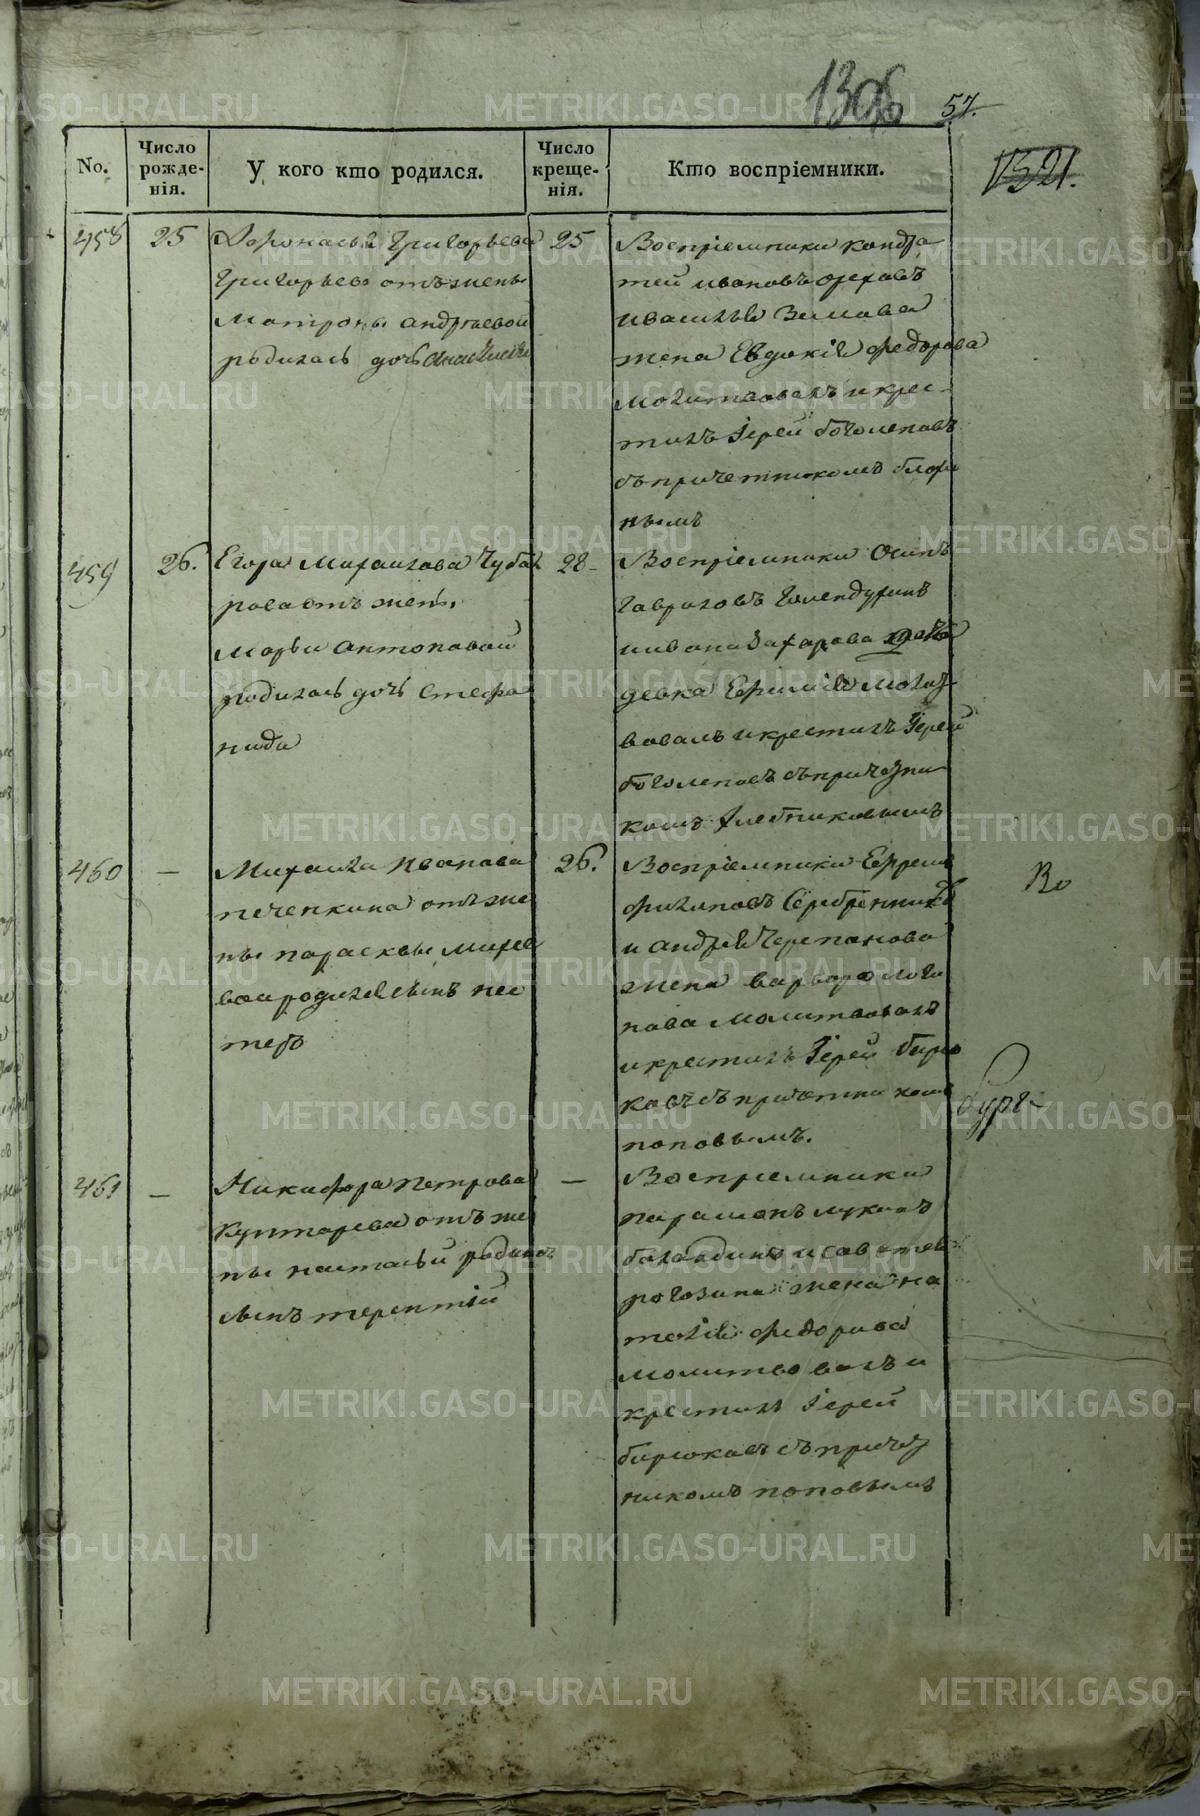 1306
57.
1321.
No.
Число рожде-нія.
У кого кто родился.
Число креще-нія.
Кто воспріемники.
458
25
Григорьева
Григорьева отъ жены
Матроны Андреевой
родилась дочь
25
Воспріемники Кондра
тей Ивановъ
Зимова
жена Евдокія Федорова
молитвовалъ и крес-
тилъ Іерей Боголеповъ
съ причетникомъ
нымъ
459
26.
Егора Михаилова Чуба
рова отъ жены
Марьи Антоновой
родилась дочь Стефа
нида
28
Воспріемники Осипъ
Гавриловъ
и Ивана Захарова дочь
девка Ефимія молит
вовалъ и крестилъ Іерей
Боголеповъ съ причетни
комъ
460
—
Михаила Иванова
Печенкина отъ же
ны Парасквы Михее
вой родился сынъ Нес
теръ
26.
Воспріемники Ефремъ
Филиповъ Серебренниковъ
и Андрея Черепанова
жена Варвара Логи
нова молитвовалъ
и крестилъ Іерей Бирю
ковъ съ причетникомъ
Поповымъ.
Во
бург-
461
—
Никифора Петрова
отъ же
ны Настасьи родился
сынъ Терентій
—
Воспріемники
Парамонъ Лукинъ
и Савател
Рогозина жена На
талія Федорова
молитвовалъ и
крестилъ Іерей
Бирюковъ съ причет
никомъ Поповымъ
METRIKI.GASO-URAL.RU